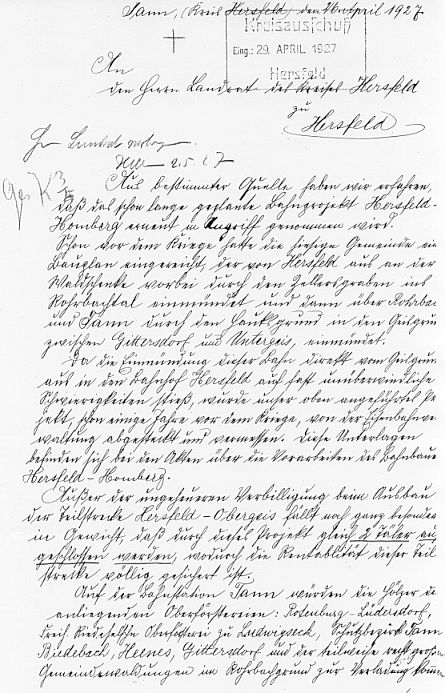 Tann, (Kreis Hersfeld) den 26. April 1927
Kreisausschuß
Eing.: 29. APRIL 1927
Hersfeld
An
den Herrn Landrat des Kreises Hersfeld
zu
Hersfeld
Aus bestimmter Quelle haben wir erfahren,
daß das schon lange geplante Bahnprojekt Hersfeld-
Homberg erneut in Angriff genommen wird.
Schon vor dem Kriege hatte die hiesige Gemeinde ein
Bauplan eingereicht, der von Hersfeld aus an der
Waldschenke vorbei durch den Zellersgraben ins
Rohrbachtal einmündet und dann über Rohrba
und Tann durch den Hauksgrund in den Geisgrun
zwischen Gittersdorf und Untergeis, einmündet.
Da die Einmündung dieser Bahn direkt vom Geisgrun
aus in den Bahnhof Hersfeld auf fast unüberwindliche
Schwierigkeiten stieß, wurde unser oben angeführtes Pr
jekt, schon einige Jahre vor dem Kriege, von der Eisenbahnve
waltung abgesteckt und vermessen. Diese Unterlagen
befinden sich bei den Akten über die Vorarbeiten des Bahnbaue
Hersfeld-Homberg.
Außer der ungeheueren Verbilligung beim Ausbau
der Teilstrecke Hersfeld-Obergeis fällt noch ganz besonder
in Gewicht, daß durch dieses Projekt gleich 2 Täler an
geschlossen werden, wodurch die Rentabilität dieser Teil
strecke völlig gesichert ist.
Auf der Bahnstation Tann würden die Hölzer de
anliegenden Oberförstereien: Rotenburg-Lüdersdorf,
Freih. Riedeselsche Oberförsterei zu Ludwigseck, Schutzbezirk Tann
Biedebach, Heenes, Gittersdorf und der teilweise recht großen
Gemeindewaldungen im Rohrbachgrund zur Verladung komm